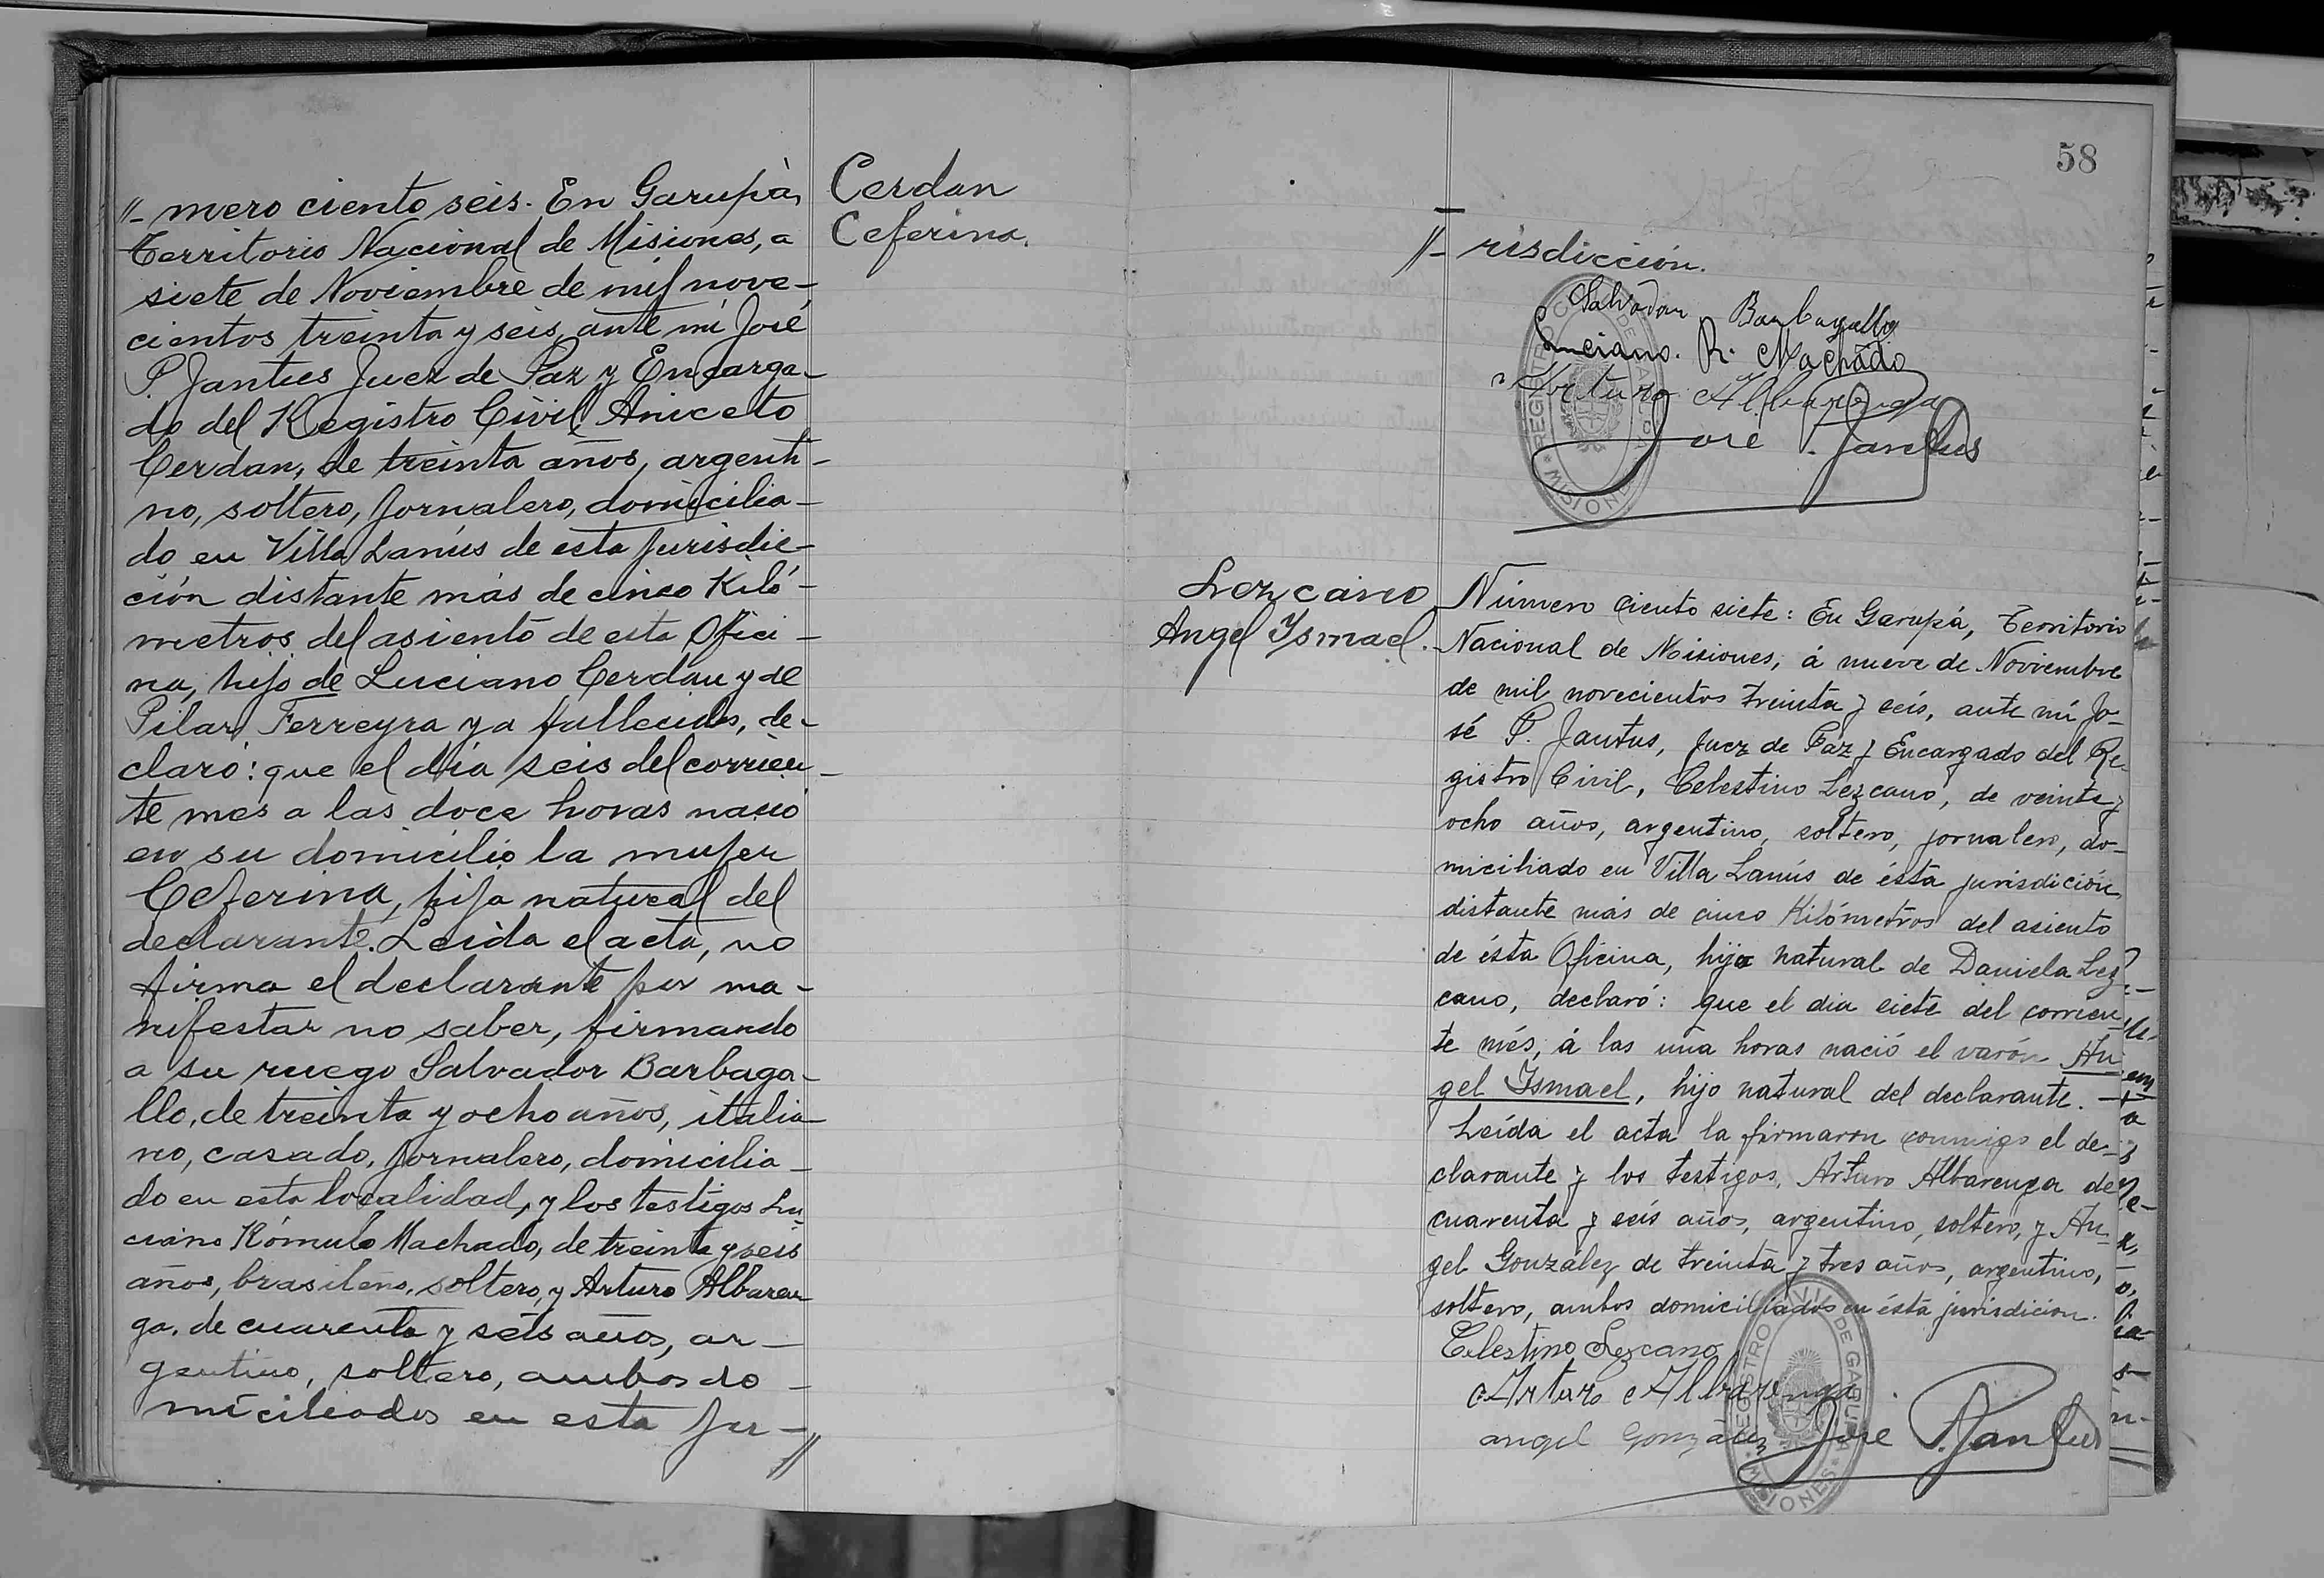 //- mero ciento seis. En Garupà,
Territorio Nacional de Misiones, a
siete de Noviembre de mil nove-
cientos treinta y seis, ante mi José
P. Jantus Juez de Paz y Encarga-
do del Registro Civil, Aniceto
Cerdan, de treinta años, argenti-
no, soltero, jornalero, domicilia-
do en Villa Lanús de esta jurisdic-
ción distante más de cinco Kiló-
metros del asiento de esta Ofici-
na, hijo de Luciano Cerdan y de
Pilar Ferreyra ya fallecidos, de-
claró: que el día seis del corrien-
te mes a las doce horas nació
en su domicilio la mujer
Ceferina, hija natural del
declarante. Leida el acta, no
firma el declarante por ma-
nifestar no saber, firmando
a su ruego Salvador Barbaga-
llo, de treinta y ocho años, italia-
no, casado, jornalero, domicilia-
do en esta localidad, y los testigos Lu-
ciano Rómulo Machado, de treinta y seis
años, brasileño, soltero, y Arturo Albaren-
ga, de cuarenta y seis años, ar-
gentino, soltero, ambos do-
miciliados en esta ju-
//
Cerdan
Ceferina.
58
//- risdicción.
Salvador Barbagallo
Luciano. R. Machado
Arturo Albarenga
José P. Jantus
REGISTRO CIVIL DE GARUPA
* MISIONES *
Lezcano
Angel Ysmael.
Número ciento siete: En Garupá, Territorio
Nacional de Misiones, á nueve de Noviembre
de mil novecientos treinta y seis, ante mí Jo-
sé P. Jantus, Juez de Paz y Encargado del Re-
gistro Civil, Celestino Lezcano, de veinte y
ocho años, argentino, soltero, jornalero, do-
miciliado en Villa Lanús de ésta jurisdición,
distante más de cinco Kilómetros del asiento
de ésta Oficina, hijo natural de Daniela Lez-
cano, declaró: que el dia siete del corrien-
te més, á las una horas nació el varón An-
gel Ismael, hijo natural del declarante. —
Leída el acta la firmaron conmigo el de-
clarante y los testigos, Arturo Albarenga de
cuarenta y seis años, argentino, soltero, y An-
gel González de treinta y tres años, argentino,
soltero, ambos domiciliados en ésta jurisdición.
Celestino Lezcano
Arturo Albarenga
angel Gonzàlez José P. Jantus
REGISTRO CIVIL DE GARUPA
* MISIONES *